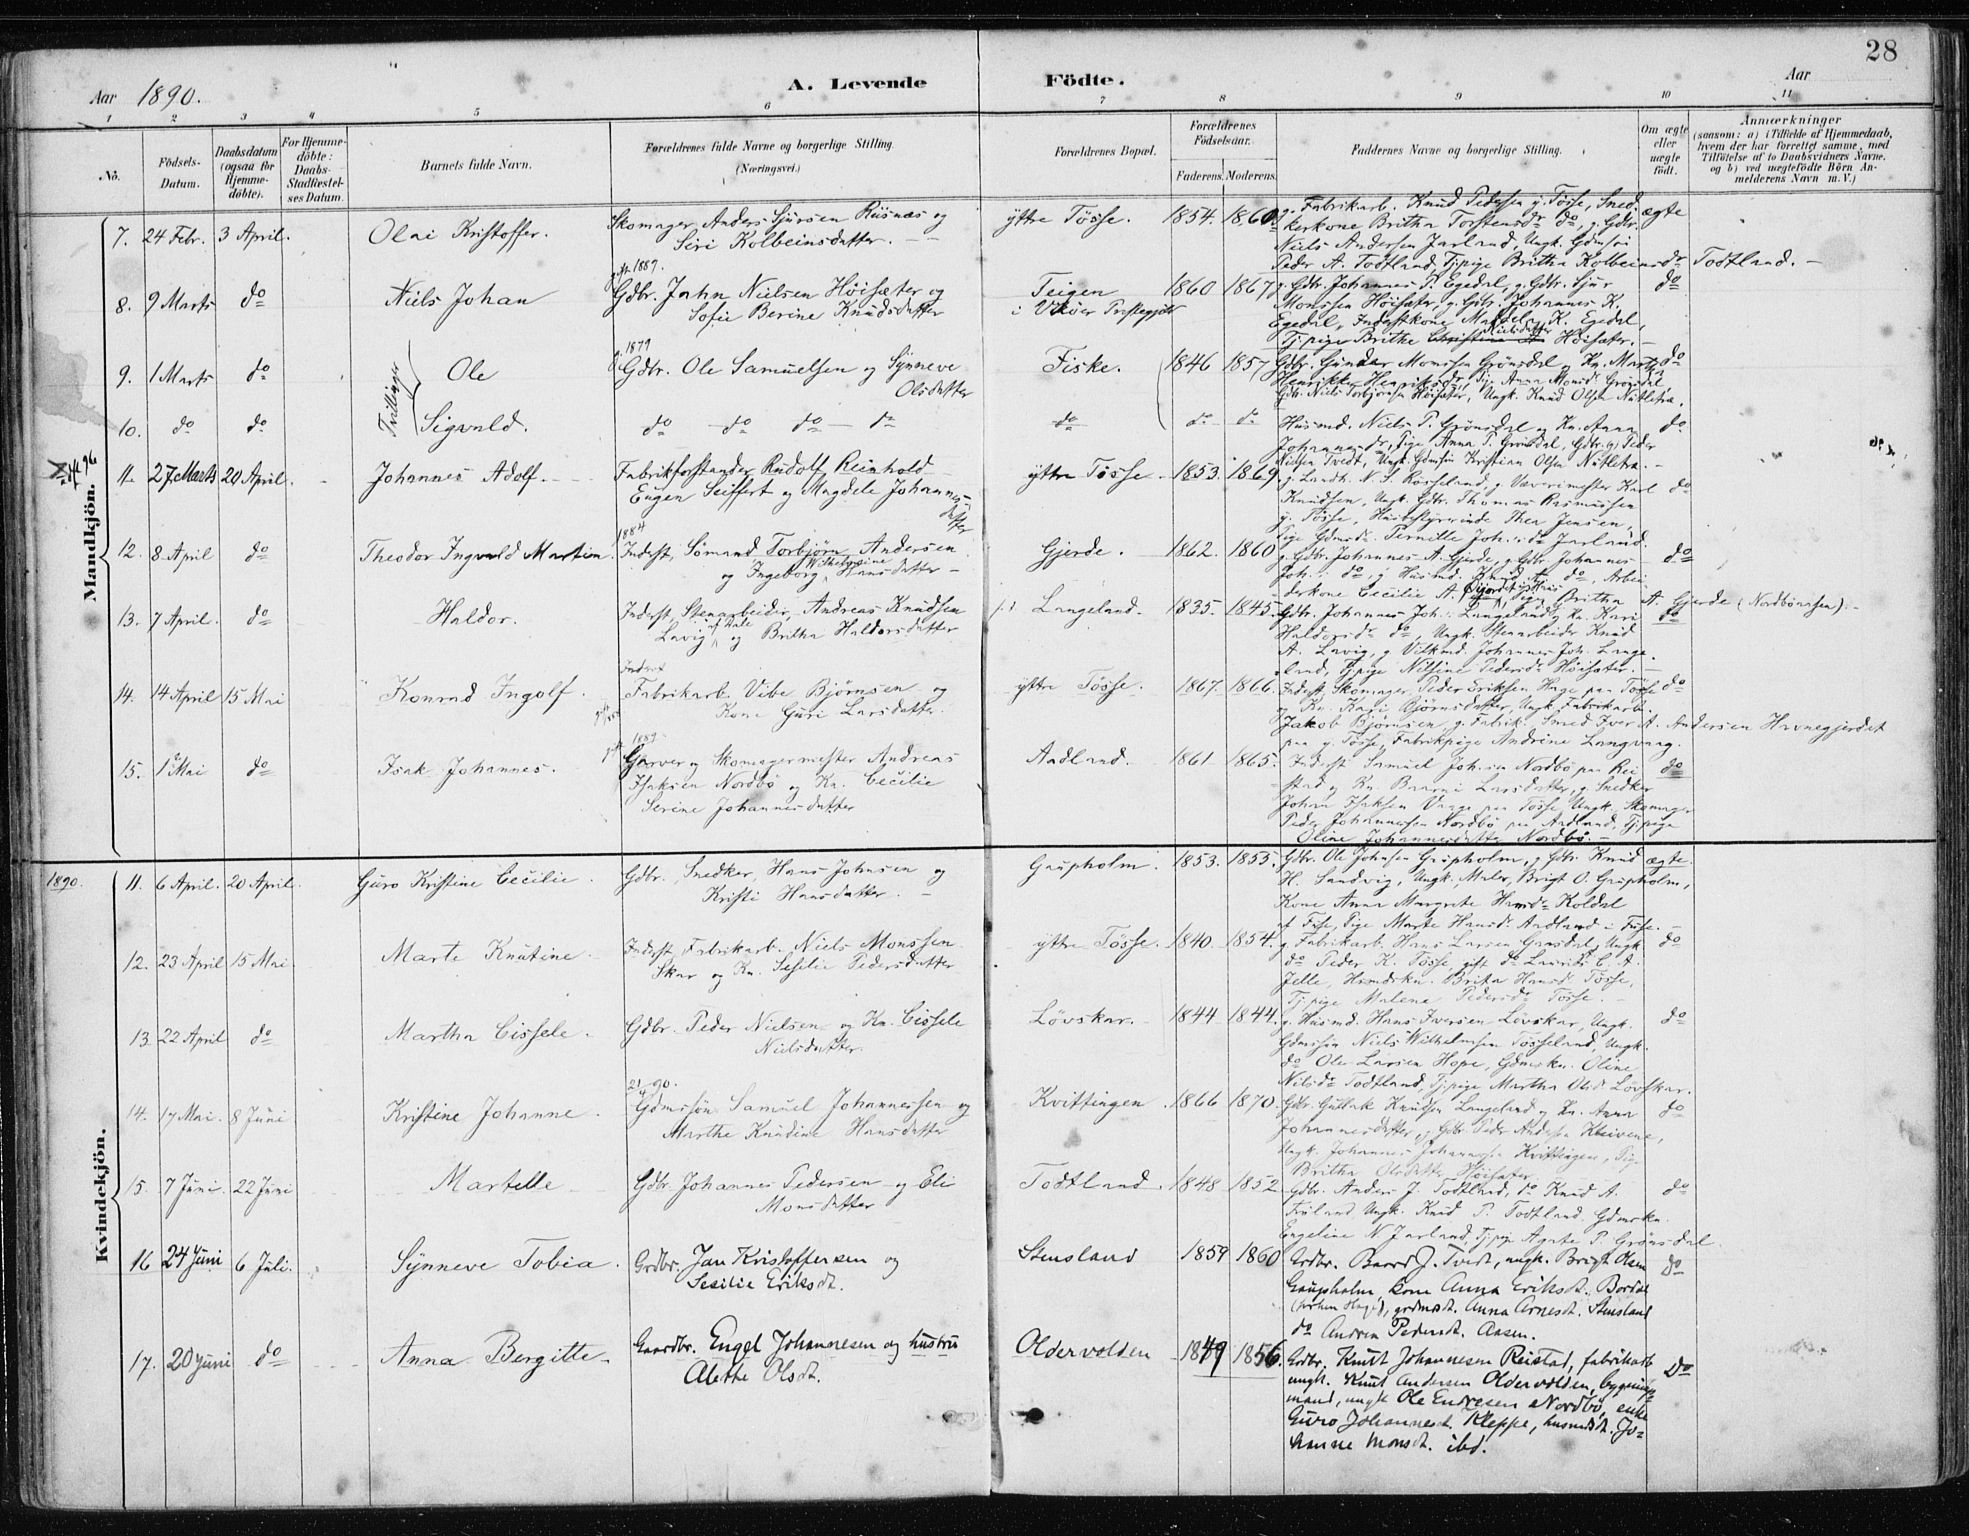 28
Aar 1890. A. Levende Födte. Aar
1 2 3 4 5 6 7 8 9 10 11
No.
Födsels-Datum.
Daabsdatum (ogsaa for Hjemme-döbte).
For Hjemme-döbte: Daabs-Stadfæstel-ses Datum.
Barnets fulde Navn.
Forældrenes fulde Navne og borgerlige Stilling.
(Næringsvei.)
Forældrenes Bopæl.
Forældrenes Födselsaar.
Faderens. Moderens.
Faddernes Navne og borgerlige Stilling.
Om ægte eller uægte födt.
Anmærkninger
(saasom: a) i Tilfælde af Hjemmedaab,
hvem der har forrettet samme, med
Tilföielse af to Daabsvidners Navne,
og b) ved uægtefödte Börn An-
melderens Navn m. V.)
Mandkjön.
7. 24 Febr. 3 April. Olai Kristoffer. Skomager Anders Sjursen Riisnæs og
Siri Kolbeinsdatter. yttre Tösse. 1854. 1860
g. Fabrikarb. Knud Pedersen y. Tösse, Smed-
kerkone Britha Torstensdr do, g. Gdbr.
Niels Andersen Jarland, Ungk. Gdmsön
Peder A. Todtland, Tj.pige Britha Kolbeinsdr Todtland. ægte
8. 9 Marts do Niels Johan
Gdbr. John Nielsen Höisæter og
Sofie Berine Knudsdatter Teigen
i Viköer Præstegjeld 1860 1867
g. Gdbr. Johannes P. Egedal, g. Gdbr. Sjur
Monssen Höisæter, g. Gdbr. Johannes K.
Egedal, Inderstkone K. Egedal,
Tj.pige Brithe Nielsdatter Höisæter. do
9. 1 Marts do Tvillinger Ole
1879
Gdbr. Ole Samuelsen og Synneve
Olsdatter Fiske. 1846 1857
Gdbr. Gunder Monssen Grönsdal og Kn. Martha
Gdbr. Niels Torbjörnsen Höisæter, Ungk. Knud Olsen Nætletræ. do
10. do do Sigvald. do do do do do do do
Husmd. Niels P. Grönsdal og Kn. Anna
Johannesdr, Pige Anna P. Grönsdal, Gdbr. Peder
Nielsen Tvedt, Ungk. Gdmsön Kristian Olsen Nætletræ. do
11. 27 Marts 20 April. Johannes Adolf. Fabrikforstander Rudolf Reinhold
Eugen Seiffert og Magdele Johannes-
datter yttre Tösse 1853. 1869
g. Landh. N. S. Rösseland, g. Væverimester Karl
Knudsen, Ungk. Gdbr. Thomas Rasmussen
y. Tösse, Husbestyrerinde Thea Jensen,
Pige Gdmsdr. Pernille Joh. dr Jarland. do
12. 8 April do Theodor Ingvald Martin.
1884
Inderst, Sömand Torbjörn Andersen
og Ingeborg Wilhelmine Hansdatter Gjerde. 1862. 1860
g. Gdbr. Johannes A. Gjerde, g. Gdbr. Johannes
Joh. do, g. Husmd. Knud A. do, Arbei-
derkone Cecilie A. Pige Britha A. Gjerde (Nordbönæsen). do
13. 7 April. do Haldor. Inderst, Stenarbeider, Andreas Knudsen
Lavig og Britha Haldorsdatter Langeland. 1835. 1845.
Gdbr. Johannes Joh. Langeland og Kn. Kari
Haldorsdr do, Ungk. Stenarbeider Knud
A. Lavig, g. Johannes Joh. Lange-
land, Tj.pige Nilsine Pedersdr Höisæter. do
14. 14 April 15 Mai Konrad Ingolf.
Fabrikarb. Vibe Björnsen og
Kone Guri Larsdatter. yttre Tösse. 1867. 1866.
Inderst, Skomager, Peder Eriksen Hage paa Tösse
og Kn. Kari Björnsdatter, Ungk. Fabrikarb.
Jakob Björnsen, g. Fabrik. Smed Iver A. Andersen Havnegjerdet
paa y. Tösse, Fabrikpige Andrine Langvaag. do
15. 1 Mai do Isak Johannes.
1889
Garver og Skomagermester Andreas
Isaksen Nordbö og Kn. Cecilie
Serine Johannesdatter Aadland. 1861 1865.
Inderst Samuel Joh. Nordbö paa Rei-
stad og Kn. Larsdatter, g. Snedker
Johan Isaksen Vaage paa Tösse, Ungk. Skomager
Peder Johannessen Nordbö paa Aadland, Tj.pige
Oline Johannesdatter Nordbö. do
Kvindekjön.
1890. 11. 6 April. 20 April. Guro Kristine Cecilie. Gdbr. Snedker, Hans Johnsen og
Kristi Hansdatter Gaupholm. 1853. 1853.
Gdbr. Ole Johnsen Gaupholm, g. Gdbr. Knud
H. Sandvig, Ungk. Maler, Brigt O. Gaupholm,
Kone Anna Margrete Hansdr Koldal
af Fuse, Pige Marte Hansdr Aadland i Fuse. ægte.
12. 23 April 15 Mai. Marte Knutine. Inderst, Fabrikarb. Niels Monssen
Skar og Kn. Sesilie Pedersdatter yttre Tösse. 1840. 1854.
g. Fabrikarb. Hans Larsen Ungk.
do Peder K. Tösse, gift do Laurits C. A.
Jelle, Husmdskn. Brita Hansdr Tösse,
Tj.pige Malene Pedersdr Tösse. do
13. 22 April do Martha Cissele. Gdbr. Peder Nielsen og Kn. Cissele
Nielsdatter. Lövskar. 1844 1844.
g. Husmd. Hans Iversen Lövskar, Ungk.
Gdmssön Niels Wilhelmsen Tösseland, Ungk.
do Ole Larsen Hope, Gdmskn. Oline
Nilsdr Todtland, Tj.pige Martha Olsdr Lövskar. do
14. 17 Mai. 8 Juni Kristine Johanne.
Gdmssön Samuel Johannessen og
Marthe Knudine Hansdatter Kvittingen. 1866 1870.
Gdbr. Gullak Knudsen Langeland og Kn. Anna
Johannesdatter, g. Gdbr. Peder Andersen Kleivene,
Ungk. Johannes Johannessen Kvittingen, Pige
Britha Olsdatter Höisæter. do
15. 7 Juni. 22 Juni Martelle Gdbr. Johannes Pedersen og Eli
Monsdatter Todtland. 1848 1852
Gdbr. Anders J. Todtland, do Knud A.
Ungk. Knud P. Todtland. Gdmskn.
Engeline N. Jarland, Tj.pige Agate P. Grönsdal. do
16 24 Juni 6 Juli. Synneve Tobia. Grdbr. Jan Kristoffersen og
Sesilie Eriksdt. Stensland 1859 1860
Grdbr. Baard J. Tvedt, ungk. Brigt Olsen
Gaupholm, kone Anna Eriksdt. Bordal
grdmdt. Anna Arnesdt. Stensland
do Andrea Pedersdt. Aasen. do
17. 20 Juni do Anna Bergitte. Gaardbr. Engel Johannesen og hustru
Alette Olsdt. Oldervolden 1849 1856.
Grdbr. Knut Johannesen Reistad, fabrikarb
ungk. Knut Andersen Oldervolden, bygnings-
mand, ungk Ole Endresen Nordbö, enke
Guro Johannesdt. Kleppe, husmdsdt. Jo-
hanne Monsdt. ibd. do